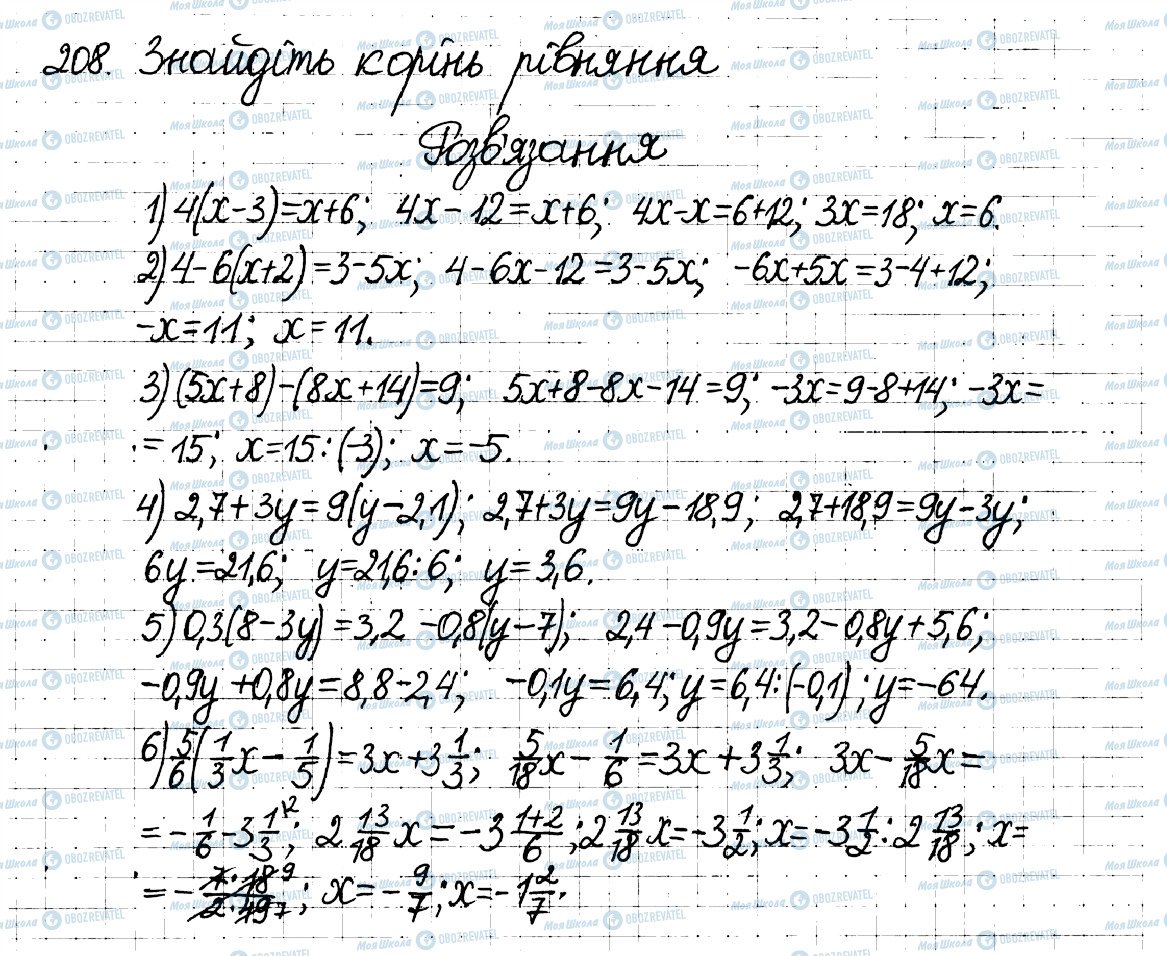 208. Знайдіть корінь рівняння
Розв'язання
1) 4(x-3)=x+6; 4x-12=x+6; 4x-x=6+12; 3x=18; x=6.
2) 4-6(x+2)=3-5x; 4-6x-12=3-5x; -6x+5x=3-4+12;
-x=11; x=11.
3) (5x+8)-(8x+14)=9; 5x+8-8x-14=9; -3x=9-8+14; -3x=
=15; x=15:(-3); x=-5.
4) 2,7+3y=9(y-2,1); 2,7+3y=9y-18,9; 2,7+18,9=9y-3y;
6y=21,6; y=21,6:6; y=3,6.
5) 0,3(8-3y)=3,2-0,8(y-7); 2,4-0,9y=3,2-0,8y+5,6;
-0,9y+0,8y=8,8-2,4; -0,1y=6,4; y=6,4:(-0,1); y=-64.
6) 5/6(1/3x-1/5)=3x+3 1/3; 5/18x-1/6=3x+3 1/3; 3x-5/18x=
=-1/6-3 1/3 \2; 2 13/18x=-3 1+2/6; 2 13/18x=-3 1/2; x=-3 1/2:2 13/18; x=
=-7·18 9/2·49 7; x=-9/7; x=-1 2/7.